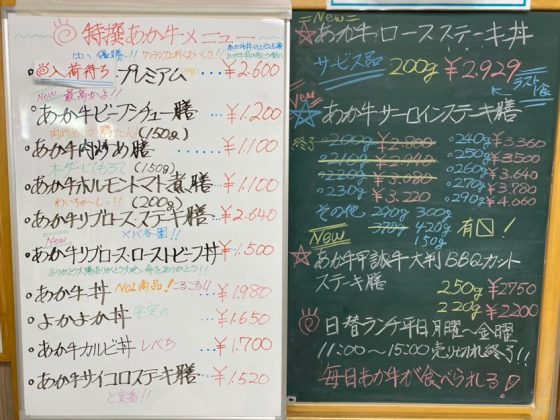 特撰あか牛メニュー
はい、優勝!!
入荷待ち プレミアム …¥2,600
New 最高かよ!!
あか牛ビーフシチュー膳 …¥1,200
(150g)
あか牛肉炒め膳 …¥1,100
(150g)
あか牛ホルモントマト煮膳 …¥1,100
(200g)
あか牛リブロースステーキ膳 …¥2,640
New
あか牛リブロースローストビーフ丼 ¥1,500
あか牛丼 No1商品! …¥1,980
よかよか丼 …¥1,650
あか牛カルビ丼 …¥1,700
あか牛サイコロステーキ膳 …¥1,520
ど定番!!
New
☆あか牛ロースステーキ丼
サービス品 200g ¥2,929
ラスト1食
New
☆あか牛サーロインステーキ膳
終了 200g ¥2,800
210g ¥2,940
220g ¥3,080
230g ¥3,220
240g ¥3,360
250g ¥3,500
260g ¥3,640
270g ¥3,780
290g ¥4,060
その他 290g 300g
420g
150g
有
New
☆あか牛甲誠牛大判BBQカット
ステーキ膳 250g ¥2750
220g ¥2200
日替ランチ平日月曜〜金曜
11:00〜15:00売り切れ終了!!
毎日あか牛が食べられる!